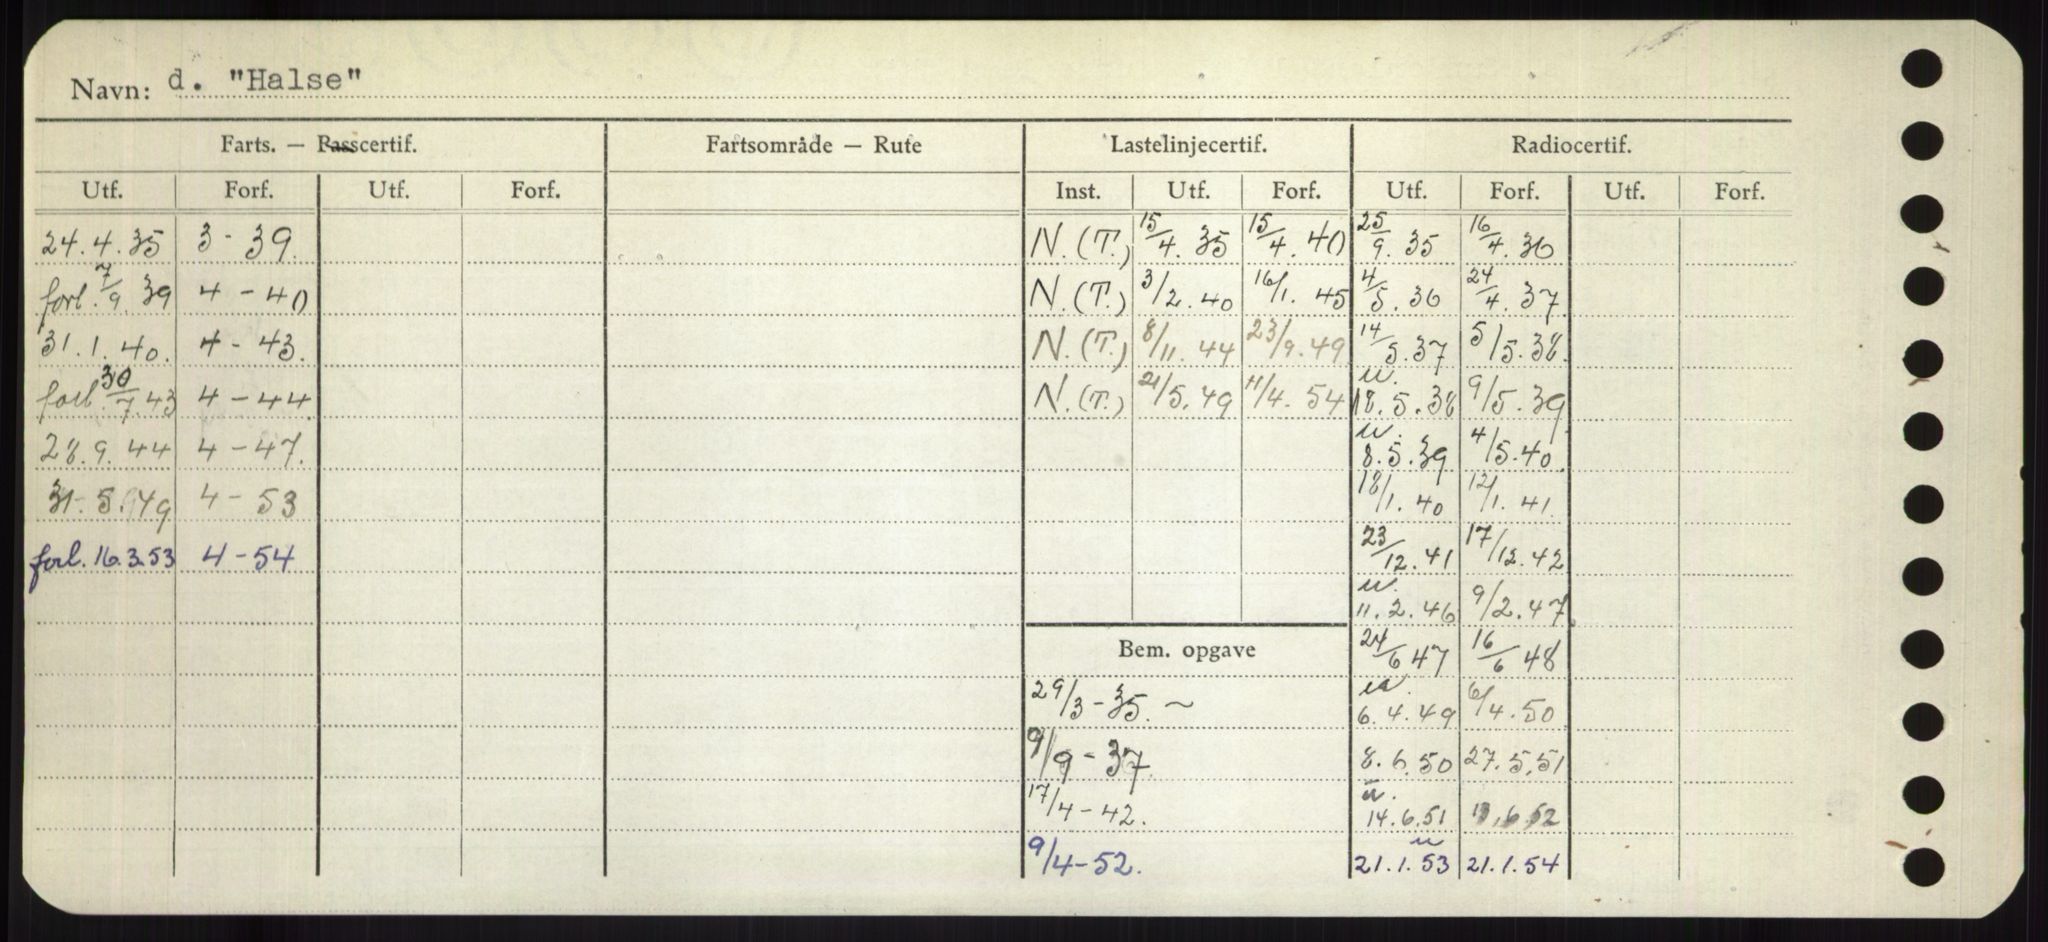 Navn: d. "Halse"
Farts. — Passcertif. Fartsområde — Rute Lastelinjecertif. Radiocertif.
Utf. Forf. Utf. Forf. Inst. Utf. Forf. Utf. Forf. Utf. Forf.
24.4.35 3-39. N.(T.) 15/4.35 15/4.40 25/9.35 16/4.36
forl. 7/9.39 4-40 N.(T.) 3/2.40 16/1.45 4/5.36 24/4.37
31.1.40. 4-43. N.(T.) 8/11.44 23/9.49 14/5.37 5/5.38.
forl. 30/7.43 4-44. N.(T.) 21/5.49 11/4.54 u. 18.5.38 9/5.39
28.9.44 4-47. u. 8.5.39 4/5.40
31.5.49 4-53 18/1.40 12/1.41
forl. 16.3.53 4-54 23/12.41 17/12.42
u. 11.2.46 9/2.47
Bem. opgave 24/6 47 16/6 48
29/3-35. ~ u. 6.4.49 6/4.50
9/9-37. 8.6.50 27.5.51
17/4-42. u. 14.6.51 6.52
9/4-52. u 21.1.53 21.1.54